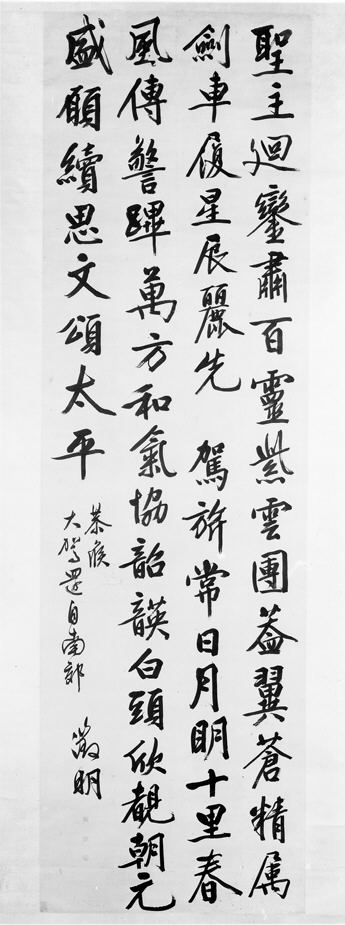 聖主迴鑾肅百靈紫雲團蓋翼蒼精属
劍車履星辰麗先駕旂常日月明十里春
風傳警蹕萬方和氣協韶韺白頭欣覩朝元
盛願續思文頌太平
恭候
大駕還自南郊
徵明